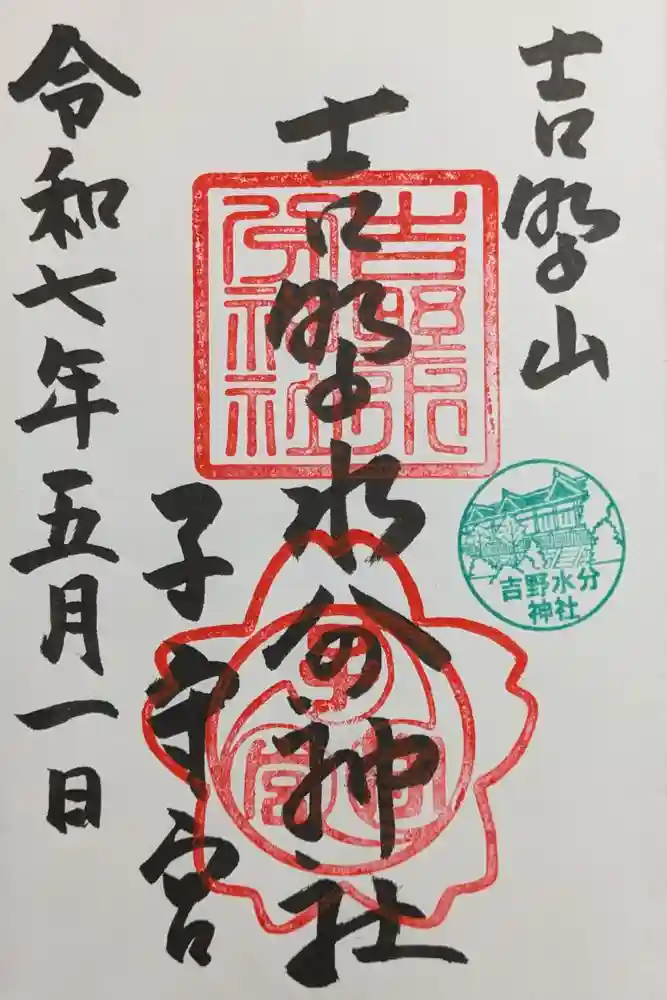 吉野山
吉野水分神社
子守宮
令和七年五月一日
吉野水分神社
吉野水分
神社
子守宮